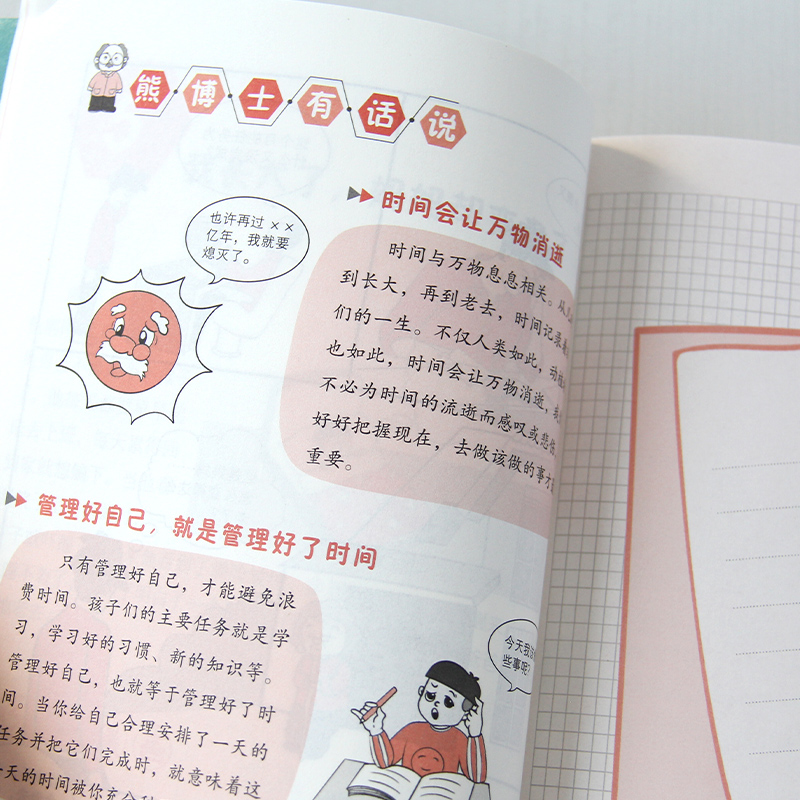 熊博士有话说
时间会让万物消逝
也许再过××
亿年，我就要
熄灭了。
时间与万物息息相关。从
到长大，再到老去，时间记录
们的一生。不仅人类如此，动
也如此，时间会让万物消逝，
不必为时间的流逝而感叹或悲
好好把握现在，去做该做的事才
重要。
管理好自己，就是管理好了时间
只有管理好自己，才能避免浪
费时间。孩子们的主要任务就是学
习，学习好的习惯、新的知识等。
管理好自己，也就等于管理好了时
间。当你给自己合理安排了一天的
任务并把它们完成时，就意味着这
一天的时间被你充分
今天我
些事呢？